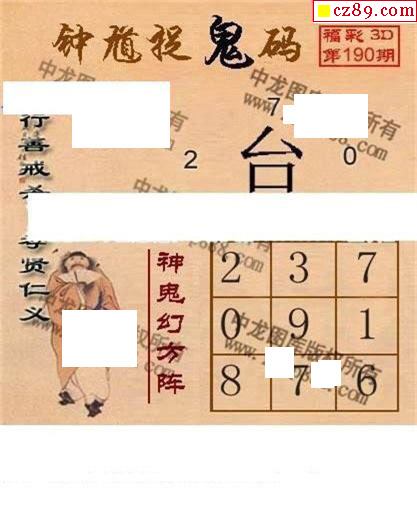 cz89.com
钟馗捉鬼码
福彩 3D
第190期
7
台
2
0
行善戒杀
尊贤仁义
神鬼幻方阵
2 3 7
0 9 1
8 7 6
中龙图库版权所有